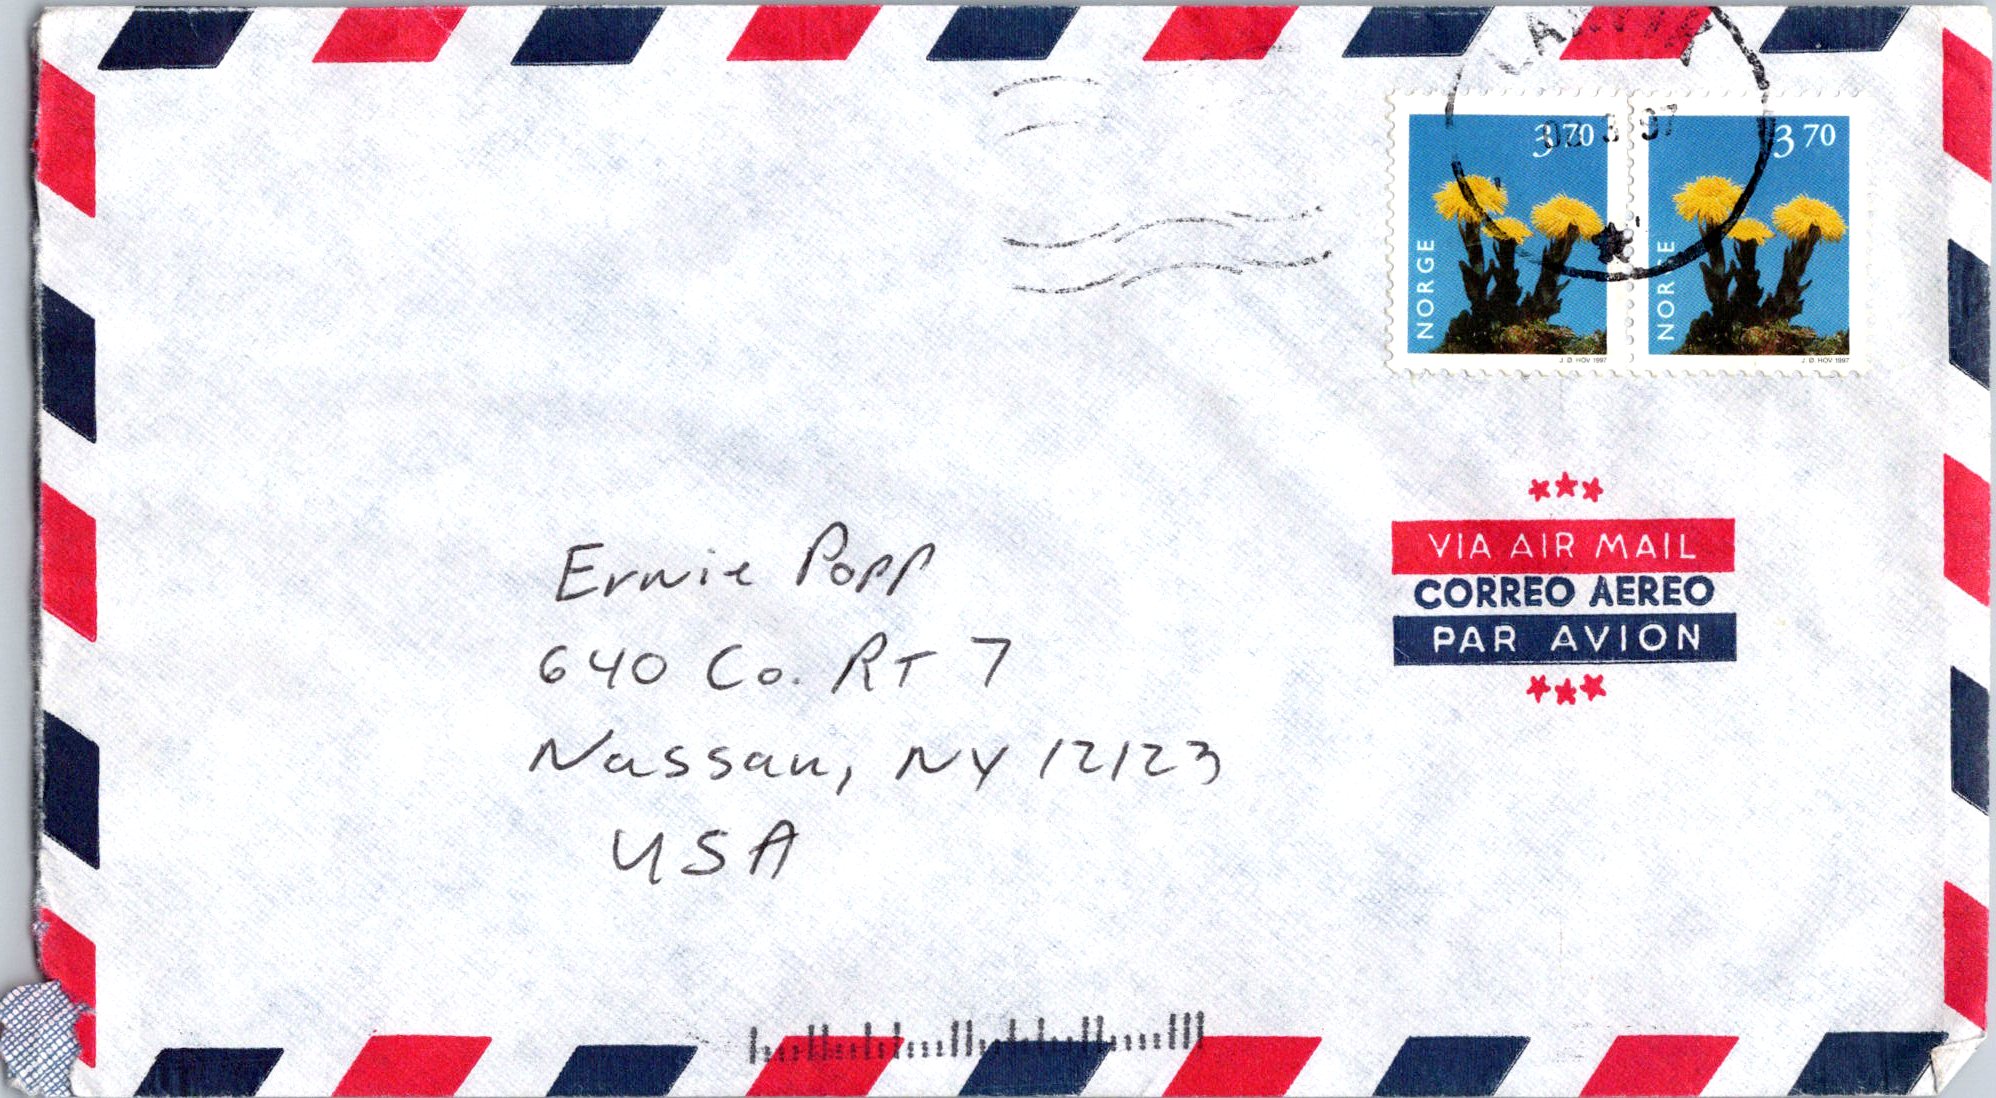 LARVIK
3 70
3 70
3 97
NORGE
NORGE
J. Ø. HOV 1997
J. Ø. HOV 1997
VIA AIR MAIL
CORREO AEREO
PAR AVION
Ernie Popp
640 Co. RT 7
Nassau, NY 12123
USA